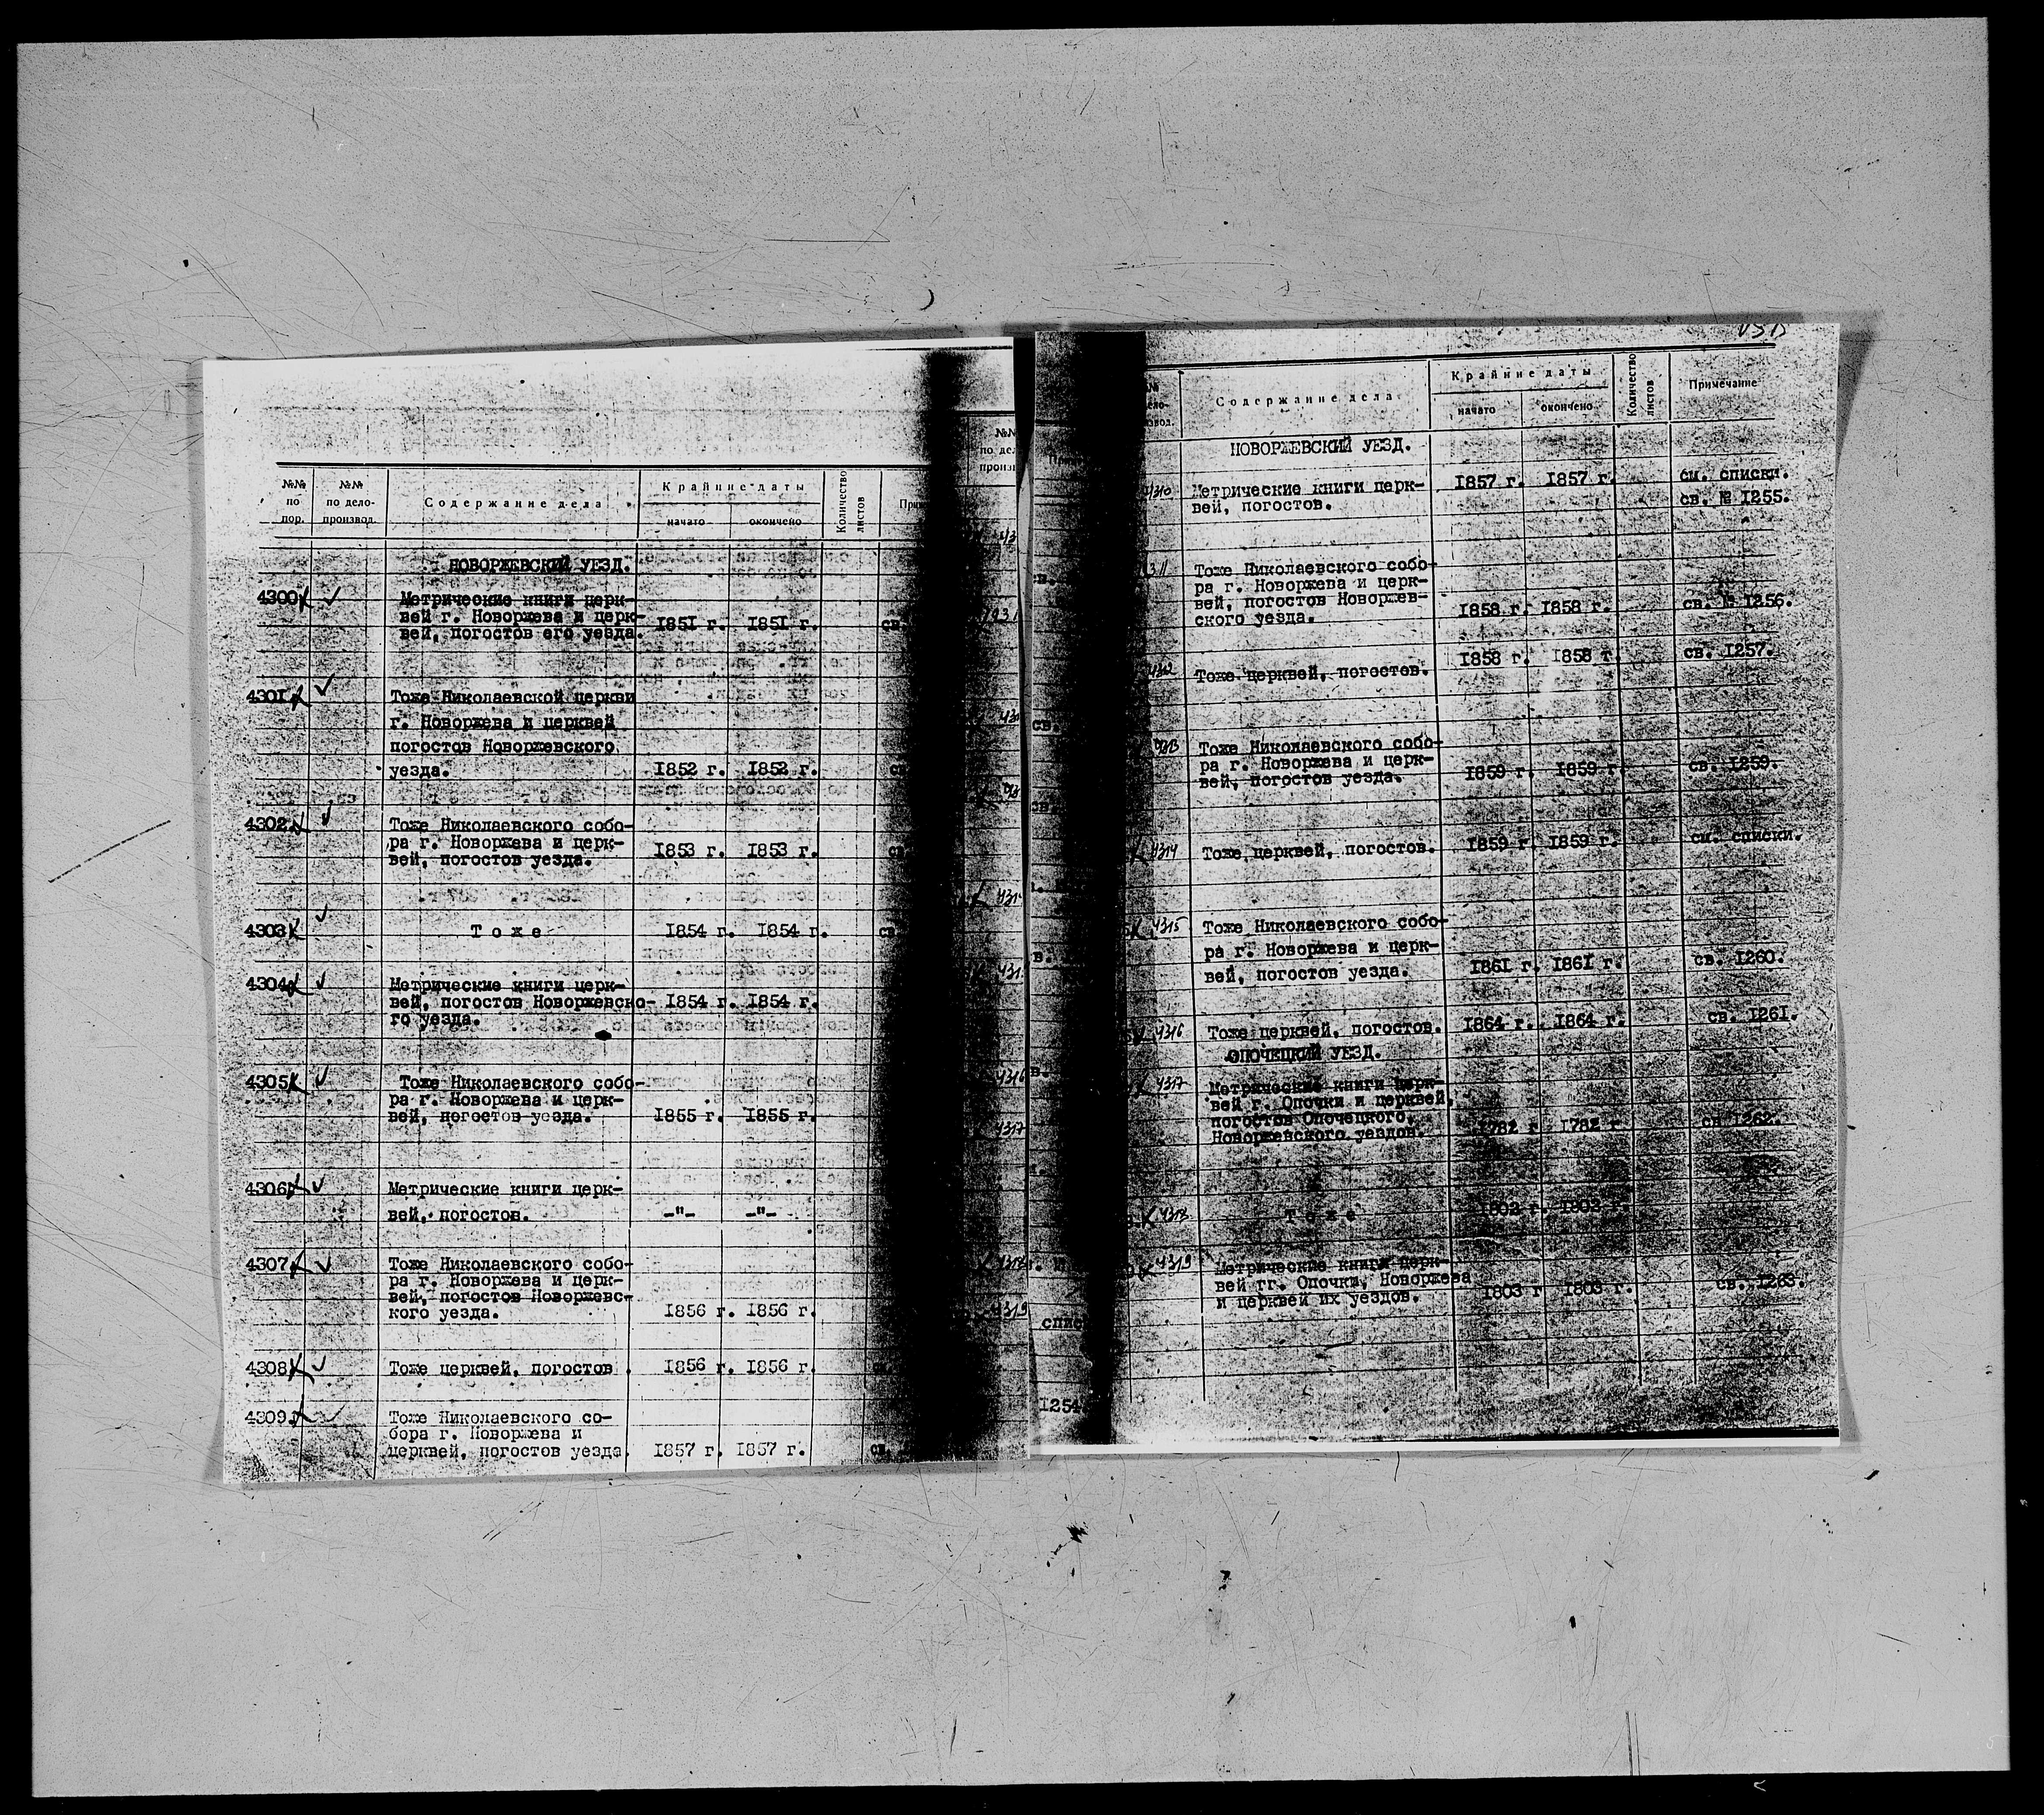 №№ по пор.
№№ по дело-производ.
Содержание дела
Крайние даты
начато
окончено
Количество листов
НОВОРЖЕВСКИЙ УЕЗД.
4300
Метрические книги церк-
вей г. Новоржева и церк-
вей, погостов его уезда. 1851 г. 1851 г. св.
4301
Тоже Николаевской церкви
г. Новоржева и церквей
погостов Новоржевского
уезда. 1852 г. 1852 г.
4302
Тоже Николаевского собо-
ра г. Новоржева и церк-
вей, погостов уезда. 1853 г. 1853 г.
4303 Тоже 1854 г. 1854 г. св.
4304
Метрические книги церк-
вей, погостов Новоржевско- 1854 г. 1854 г.
го уезда.
4305
Тоже Николаевского собо-
ра г. Новоржева и церк-
вей, погостов уезда. 1855 г. 1855 г.
4306
Метрические книги церк-
вей, погостов. -"- -"-
4307
Тоже Николаевского собо-
ра г. Новоржева и церк-
вей, погостов Новоржевс-
кого уезда. 1856 г. 1856 г.
4308 Тоже церквей, погостов. 1856 г. 1856 г.
4309
Тоже Николаевского со-
бора г. Новоржева и
церквей, погостов уезда. 1857 г. 1857 г. св.
№№
по дел
произв
4316
4317
4319
спис
1254
Содержание дела
Крайние даты
начато
окончено
Количество листов
Примечание
НОВОРЖЕВСКИЙ УЕЗД.
4310 Метрические книги церк- 1857 г. 1857 г. см. списки.
вей, погостов. св. № 1255.
4311 Тоже Николаевского собо-
ра г. Новоржева и церк-
вей, погостов Новоржев-
ского уезда. 1858 г. 1858 г. св. № 1256.
4312 Тоже церквей, погостов. 1858 г. 1858 г. св. 1257.
4313 Тоже Николаевского собо-
ра г. Новоржева и церк-
вей, погостов уезда. 1859 г. 1859 г. св. 1259.
4314 Тоже церквей, погостов. 1859 г. 1859 г. см. списки.
4315 Тоже Николаевского собо-
ра г. Новоржева и церк-
вей, погостов уезда. 1861 г. 1861 г. св. 1260.
4316 Тоже церквей, погостов. 1864 г. 1864 г. св. 1261.
ОПОЧЕЦКИЙ УЕЗД.
4317 Метрические книги церк-
вей г. Опочки и церквей,
погостов Опочецкого,
Новоржевского уездов. 1782 г 1782 г св 1262.
4318 Тоже 1802 г. 1802 г.
4319 Метрические книги церк-
вей гг. Опочки, Новоржева
и церквей их уездов. 1803 г 1803 г. св. 1263.